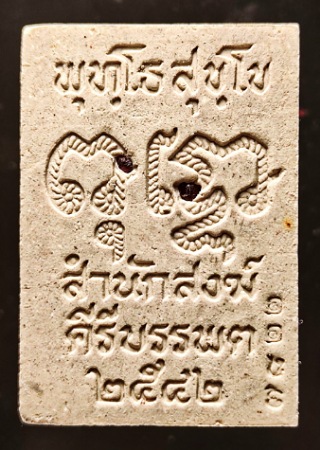 พุทฺโธ สุขฺโข
สำนักสงฆ์
คีรีบรรพต
๒๕๔๒